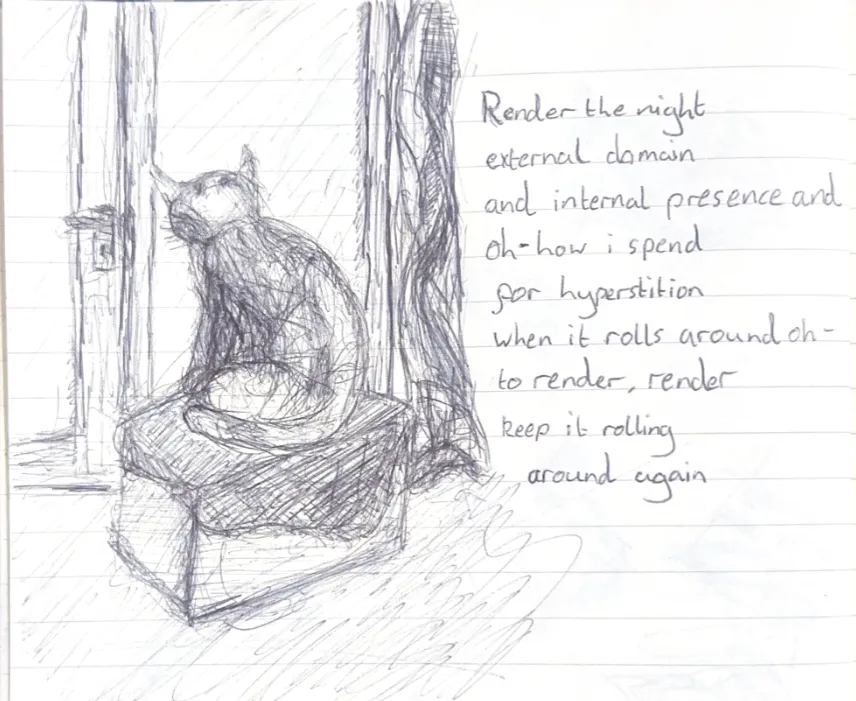 Render the night
external domain
and internal presence and
oh-how i spend
for hyperstition
when it rolls around oh-
to render, render
keep it rolling
around again